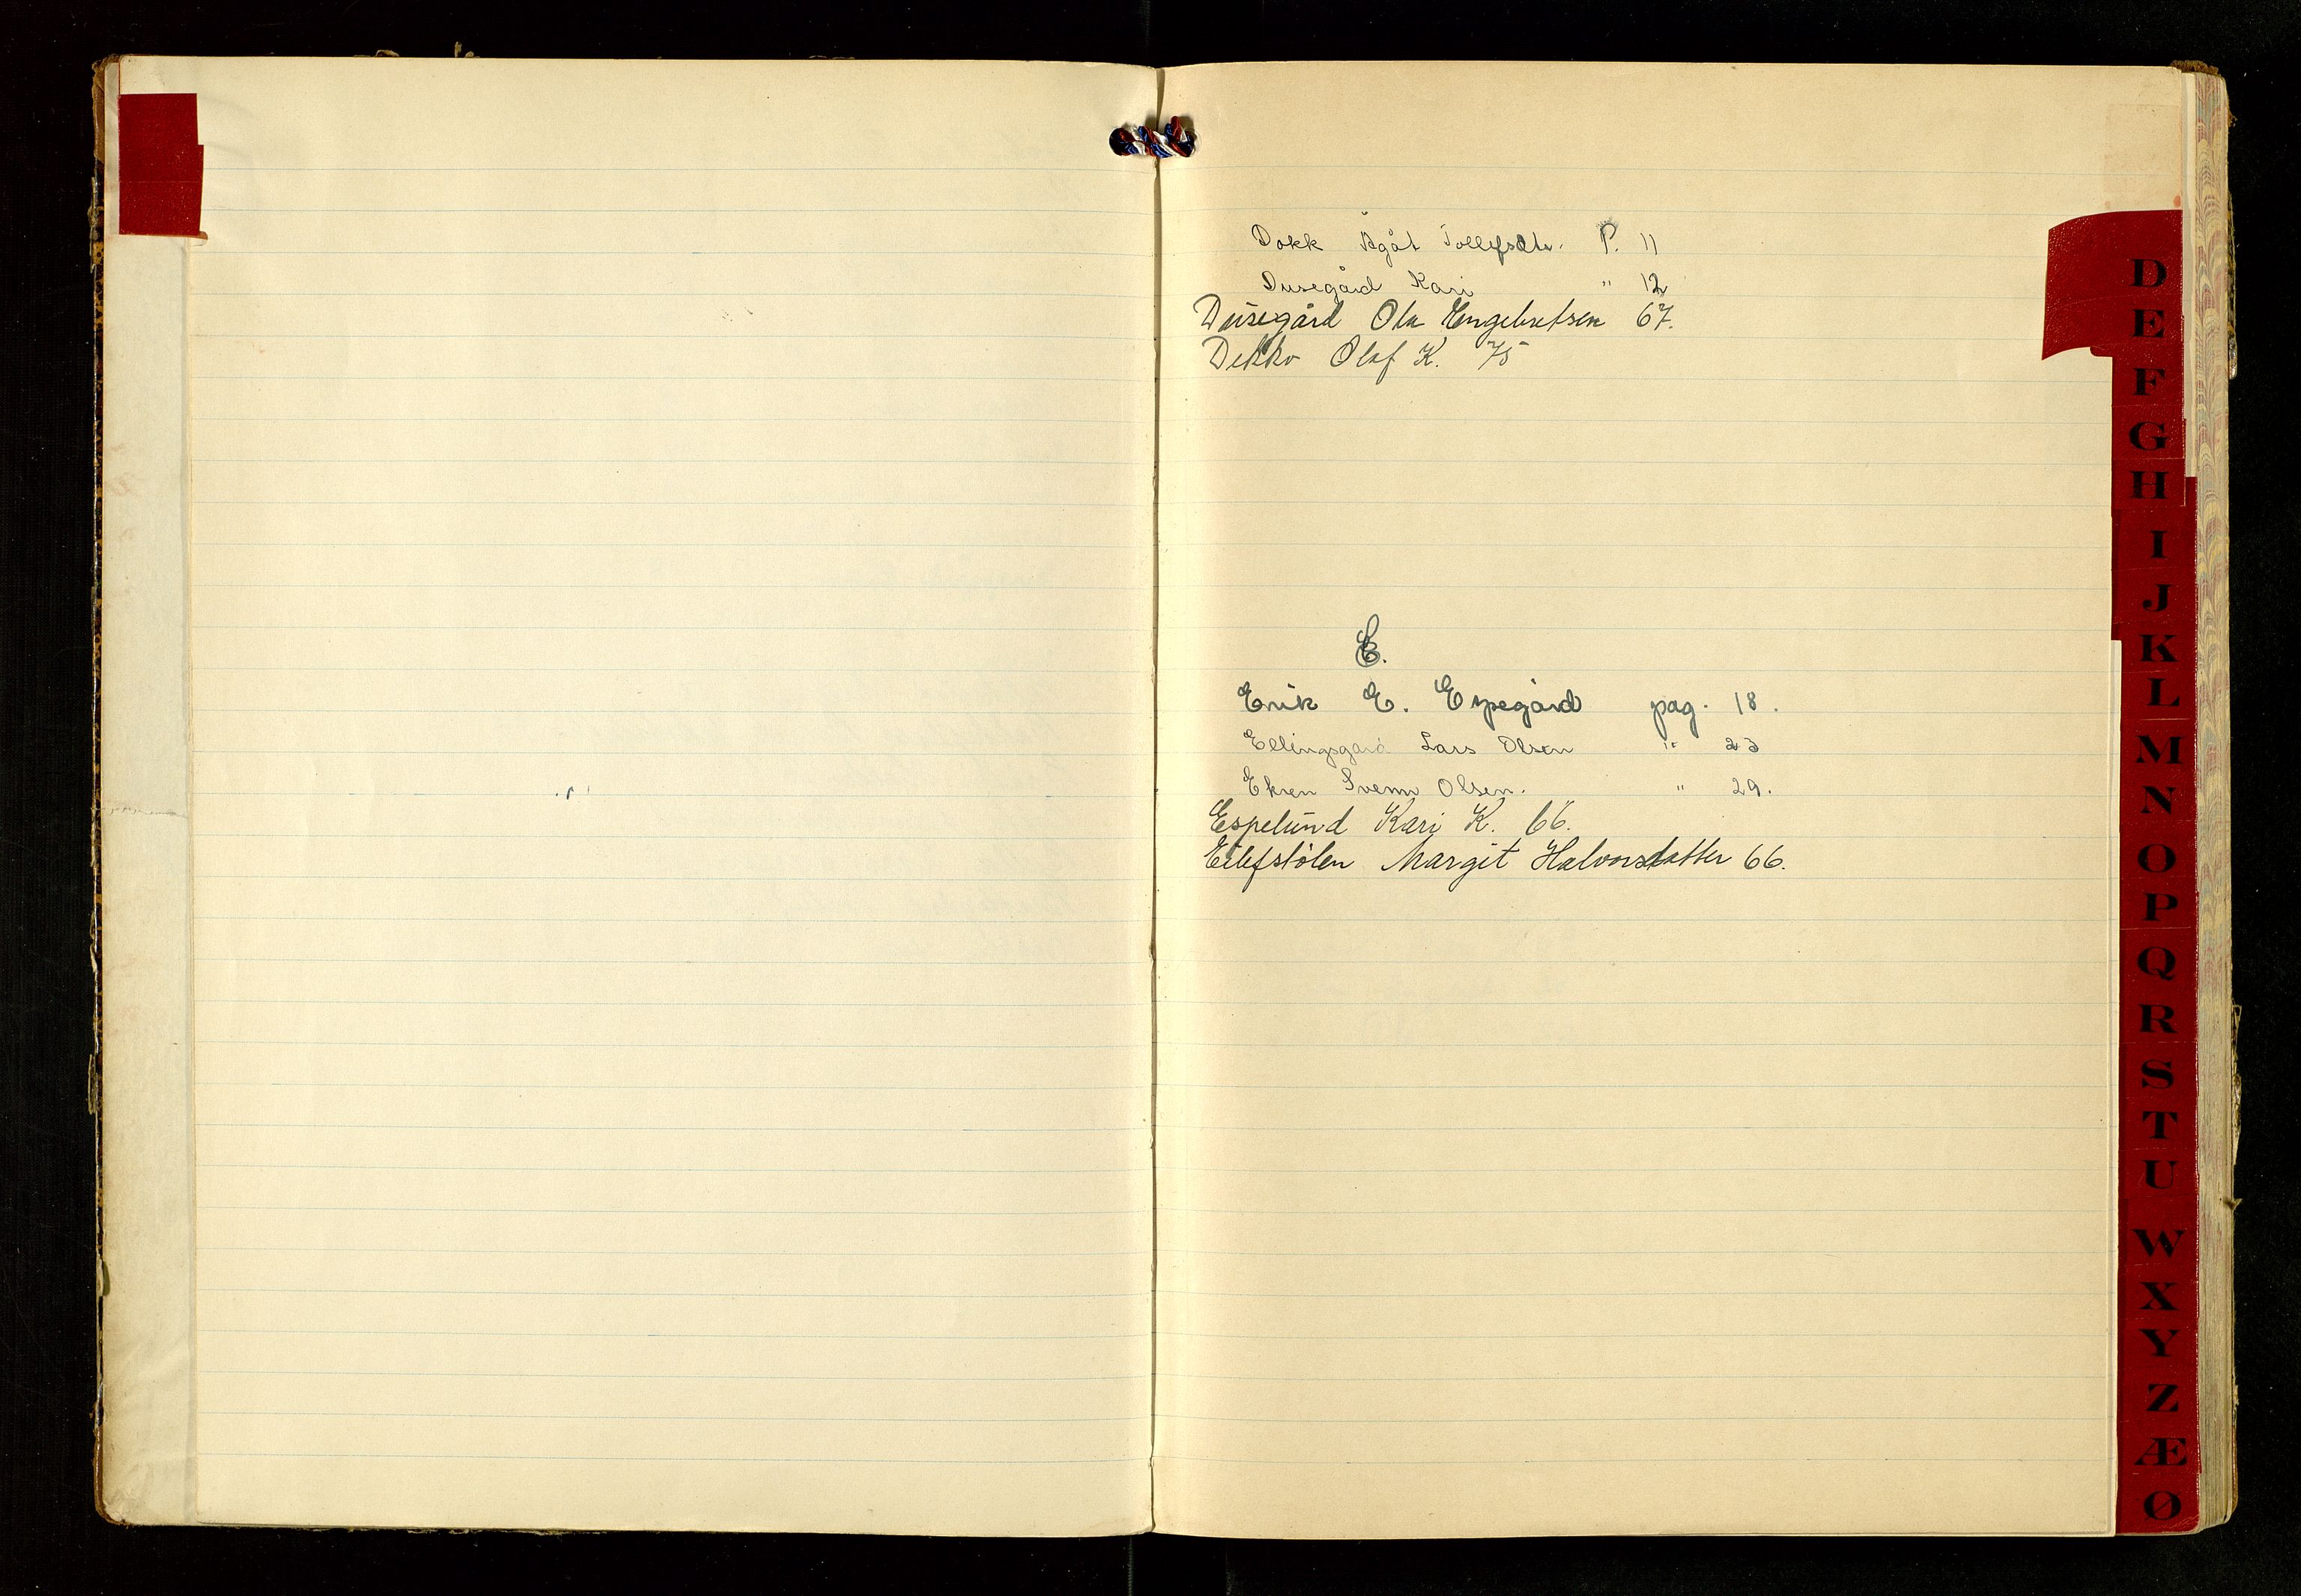 Dokk Ågåt Tollefsdtr. P. 11
Dusegård Kari " 12
Dusegård Ola Engebretsen 67.
Dekko Olaf K. 75
E.
Erik E. Espegård pag. 18.
Ellingsgård Lars Olsen " 23
Ekren Svenn Olsen. " 29.
Espelund Kari K. 66.
Eilefstølen Margit Halvorsdatter 66.
D
E
F
G
H
I
J
K
L
M
N
O
P
Q
R
S
T
U
W
X
Y
Z
Æ
Ø